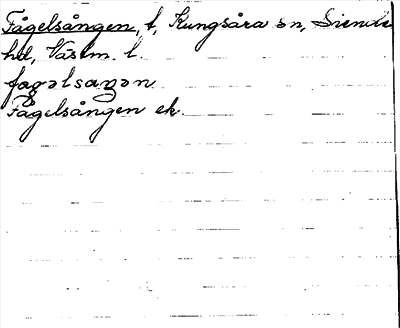 Fågelsången, t, Kungsåra sn, Siende
hd, Västm. l.
fagəlsaŋən
Fågelsången ek.